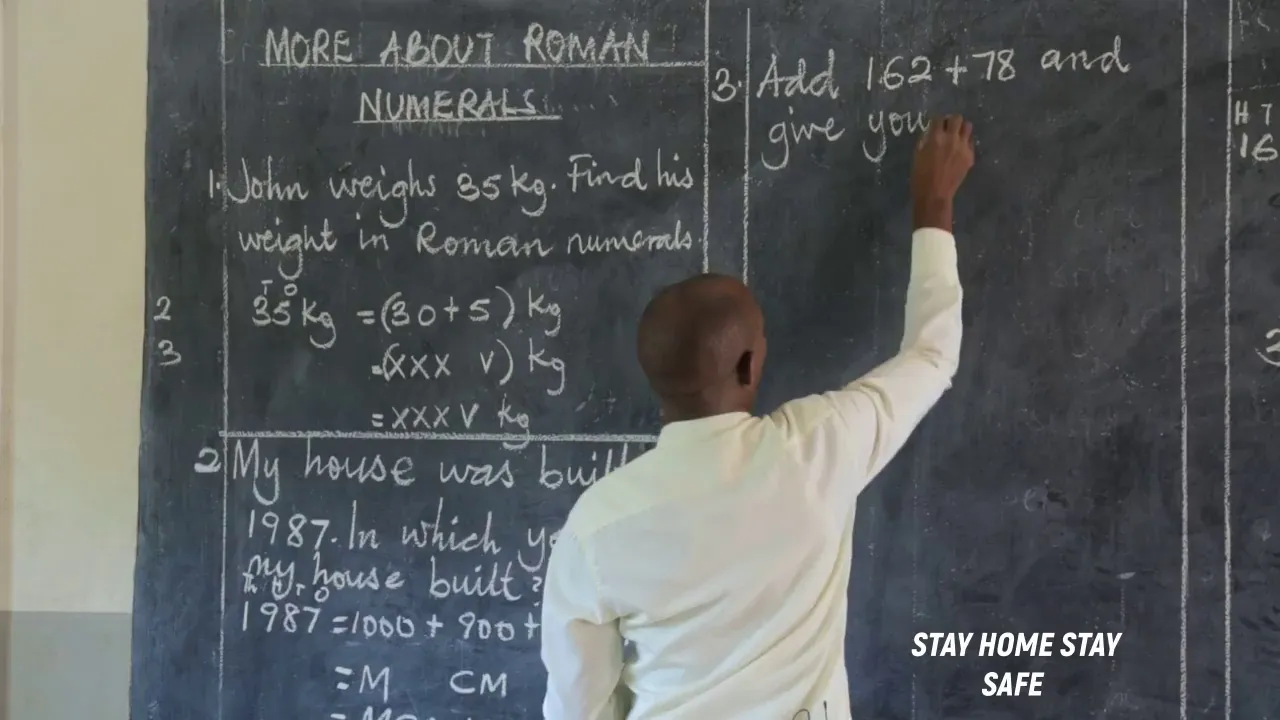 MORE ABOUT ROMAN
NUMERALS
1. John weighs 35 kg. Find his
weight in Roman numerals.
T O
2 35 kg = (30 + 5) kg
3 = (XXX V) kg
= XXX V kg
2 My house was built
1987. In which
my house built?
Th H T O
1987 = 1000 + 900 +
= M CM
3. Add 162 + 78 and
give you
H T
16
STAY HOME STAY
SAFE